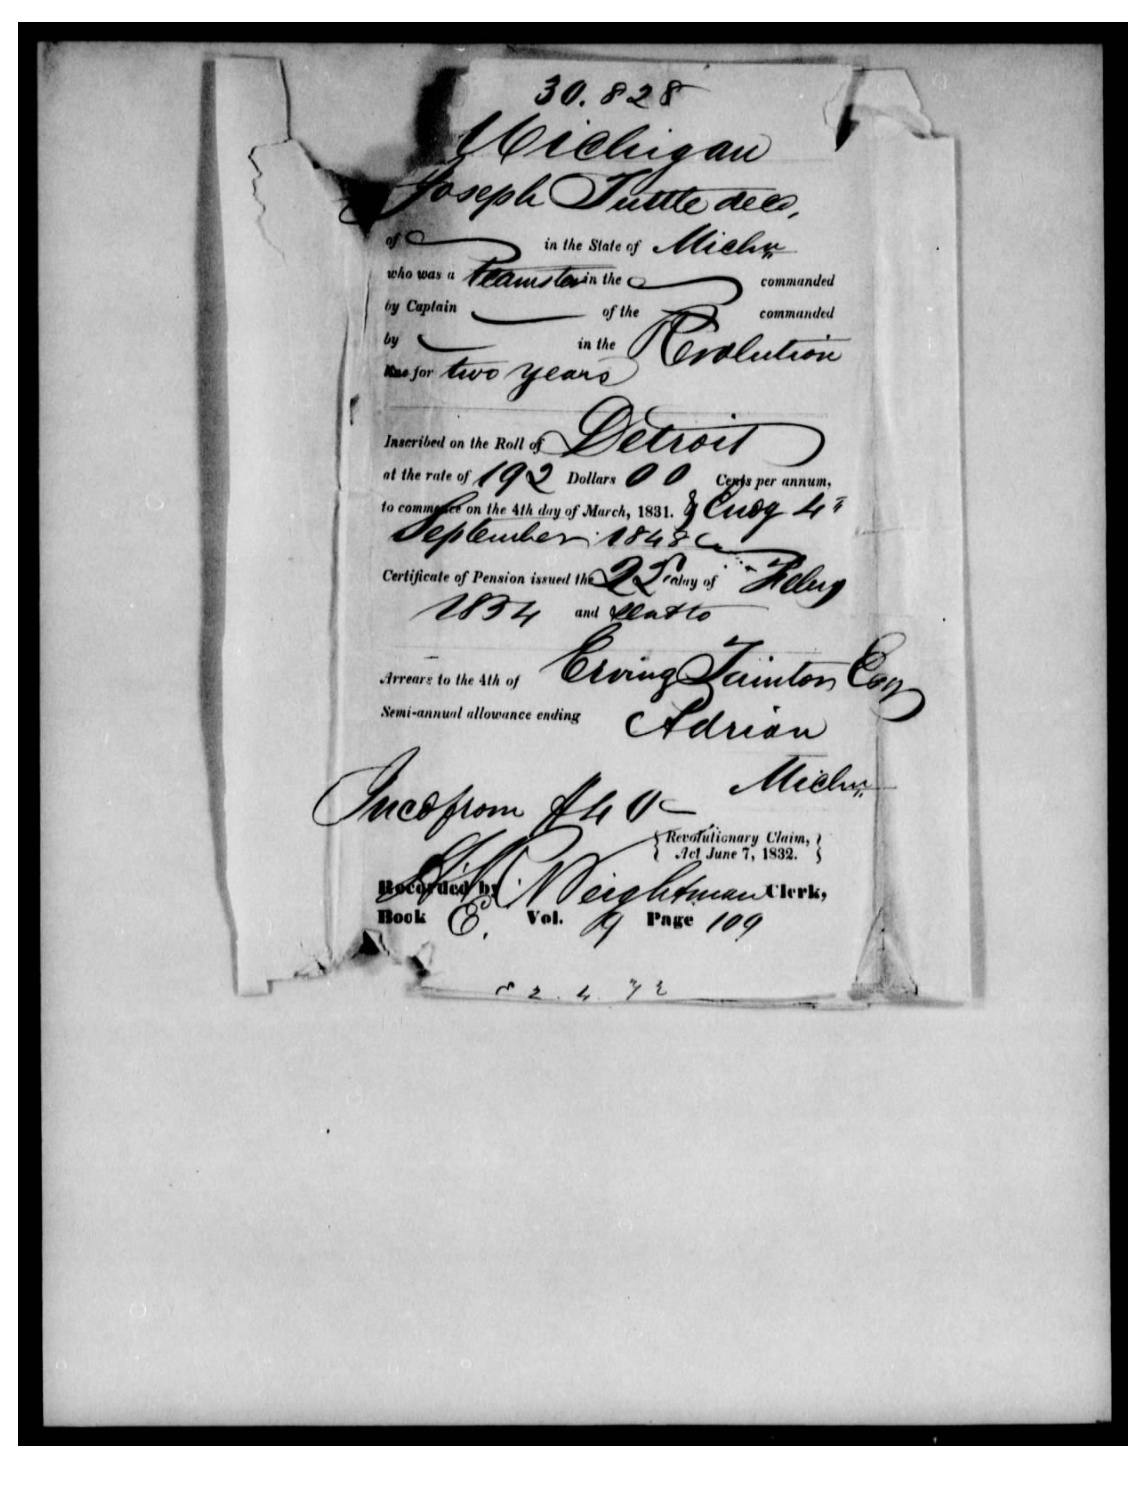 30.828
Michigan
Joseph Tuttle decd,
of in the State of Michn
who was a Teamster in the commanded
by Captain of the commanded
by in the Revolution
for two years
Inscribed on the Roll of Detroit
at the rate of 192 Dollars 00 Cents per annum,
to commence on the 4th day of March, 1831. & Endg 4"
September 1848
Certificate of Pension issued the day of Feby
1854 and
Arrears to the 4th of Erving Esq
Semi-annual allowance ending Adrian
Michn
Incd from $40
Revolutionary Claim,
Act June 7, 1832.
Recorded by Weightman Clerk,
Book E. Vol. 9 Page 109